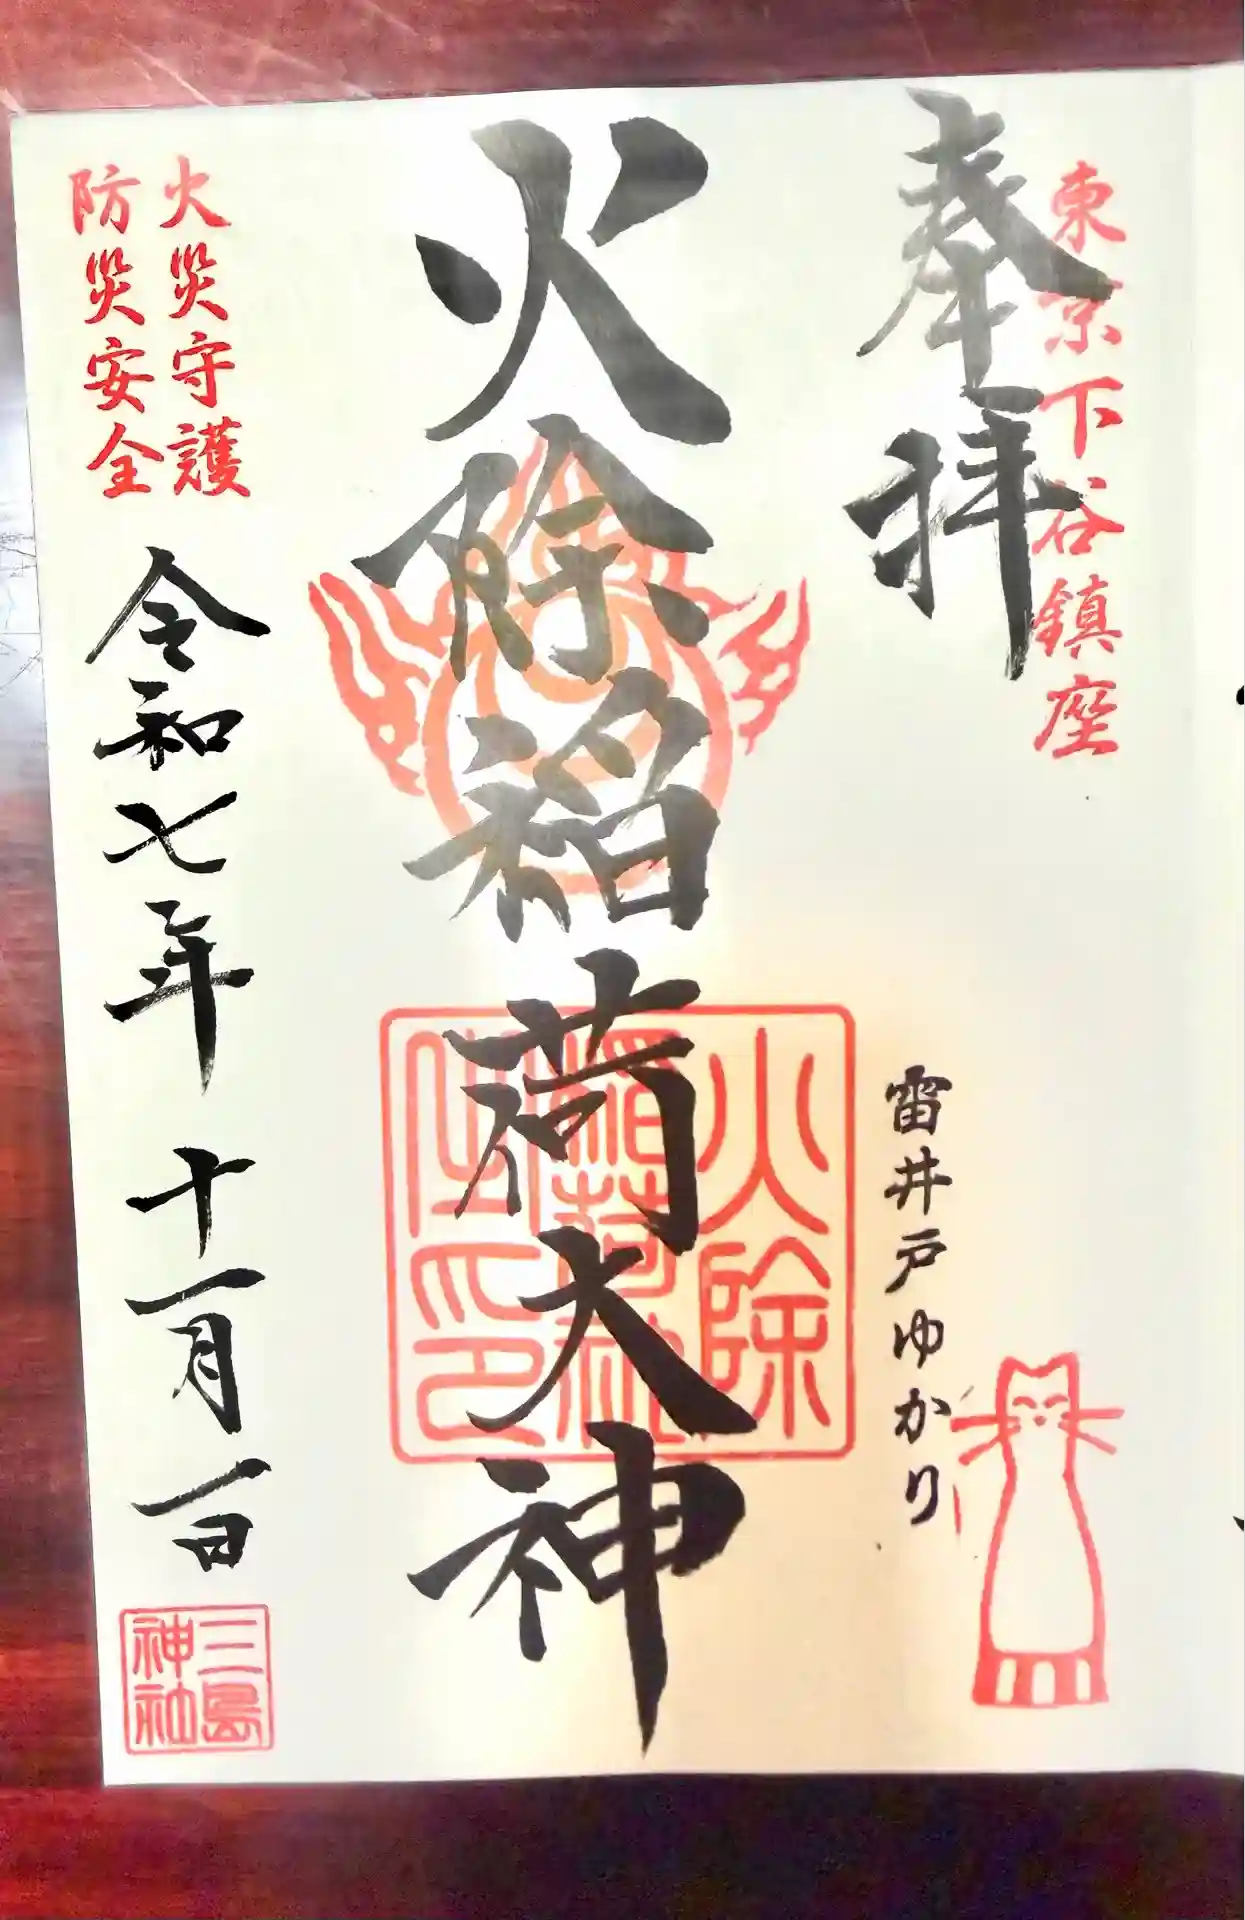 東京下谷鎮座
奉拝
雷井戸ゆかり
火除稲荷大神
火除
稲荷社
之印
火災守護
防災安全
令和七年 十一月一日
三島
神社